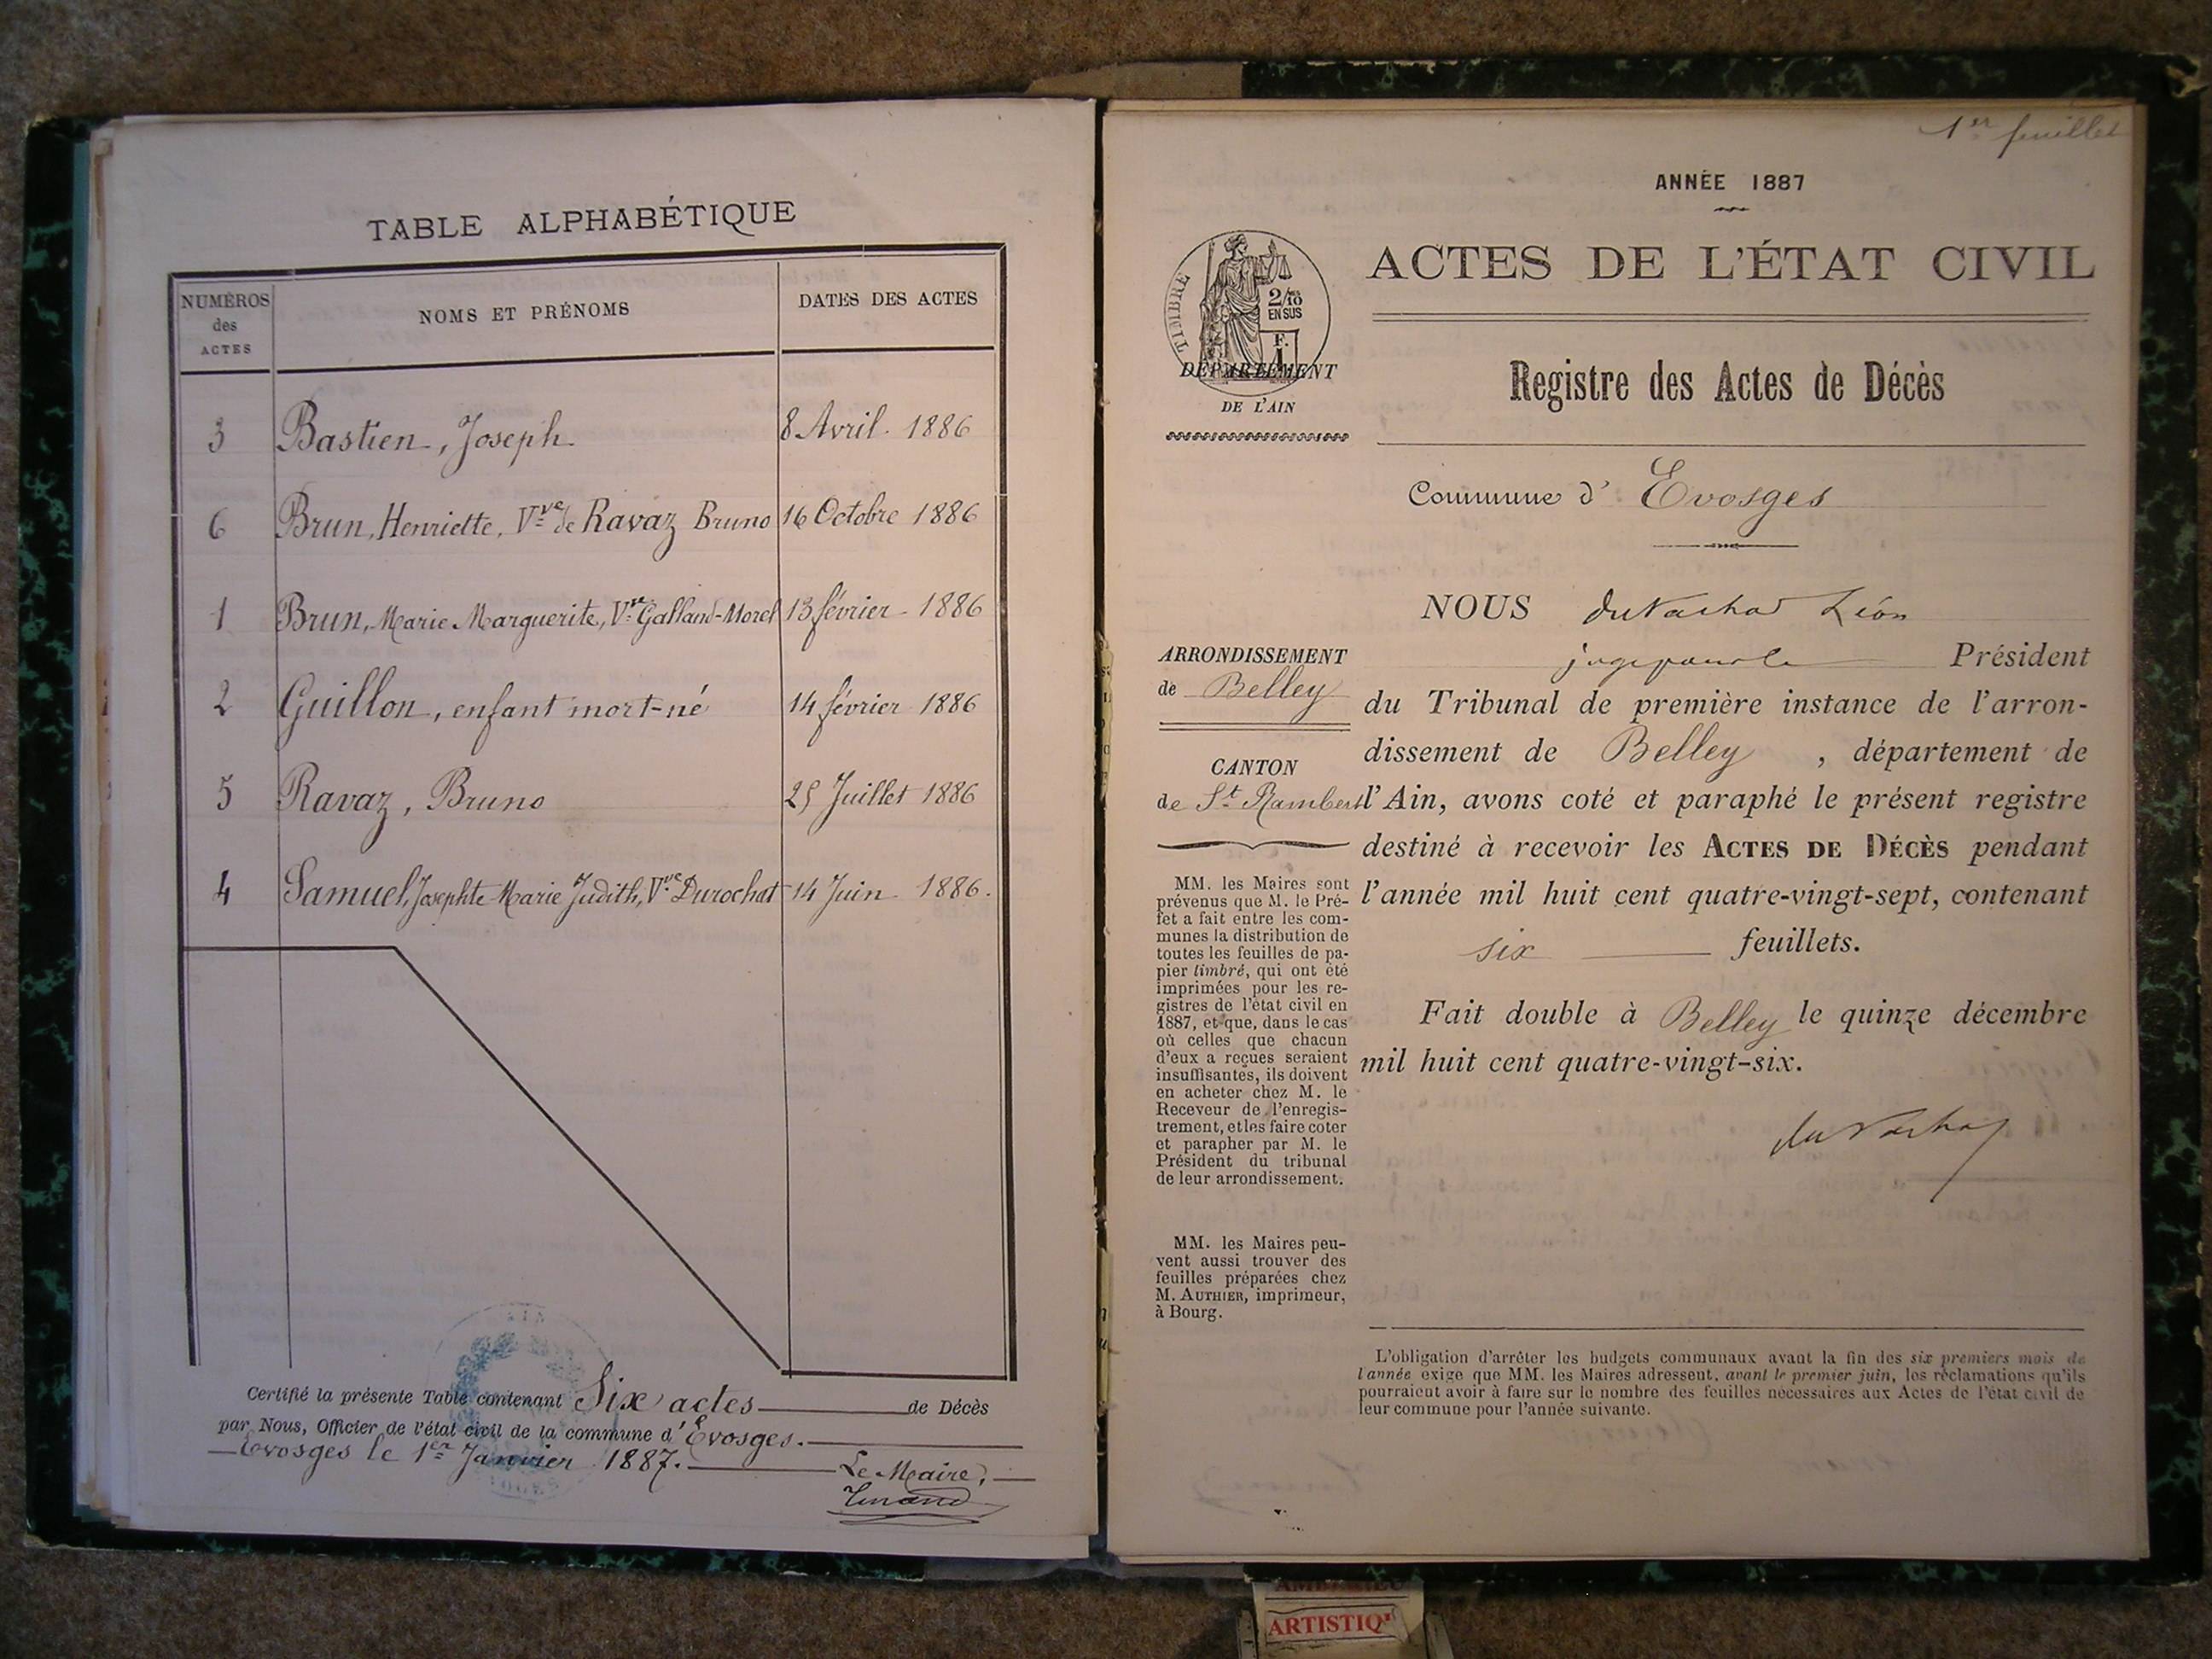 TABLE ALPHABÉTIQUE
NUMÉROS des ACTES
NOMS ET PRÉNOMS
DATES DES ACTES
3 Bastien, Joseph 8 Avril 1886
6 Brun, Henriette, Vve de Ravaz Bruno 16 Octobre 1886
1 Brun, Marie Marguerite, Vve Galland-Morel 13 février 1886
2 Guillon, enfant mort-né 14 février 1886
5 Ravaz, Bruno 25 Juillet 1886
4 Samuel, Josephte Marie Judith, Vve Durochat 14 Juin 1886.
Certifié la présente Table contenant Six actes de Décès
par Nous, Officier de l'état civil de la commune d'Evosges.
Evosges le 1er Janvier 1887.
Le Maire,
1er feuillet
ANNÉE 1887
TIMBRE
2/10 EN SUS
F.
1
DÉPARTEMENT
DE L'AIN
ACTES DE L'ÉTAT CIVIL
Registre des Actes de Décès
Commune d' Evosges
ARRONDISSEMENT
de Belley
CANTON
de St Rambert
MM. les Maires sont
prévenus que M. le Pré-
fet a fait entre les com-
munes la distribution de
toutes les feuilles de pa-
pier timbré, qui ont été
imprimées pour les re-
gistres de l'état civil en
1887, et que, dans le cas
où celles que chacun
d'eux a reçues seraient
insuffisantes, ils doivent
en acheter chez M. le
Receveur de l'enregis-
trement, et les faire coter
et parapher par M. le
Président du tribunal
de leur arrondissement.
MM. les Maires peu-
vent aussi trouver des
feuilles préparées chez
M. AUTHIER, imprimeur,
à Bourg.
NOUS Léon
Président
du Tribunal de première instance de l'arron-
dissement de Belley, département de
l'Ain, avons coté et paraphé le présent registre
destiné à recevoir les ACTES DE DÉCÈS pendant
l'année mil huit cent quatre-vingt-sept, contenant
six feuillets.
Fait double à Belley le quinze décembre
mil huit cent quatre-vingt-six.
L'obligation d'arrêter les budgets communaux avant la fin des six premiers mois de
l'année exige que MM. les Maires adressent, avant le premier juin, les réclamations qu'ils
pourraient avoir à faire sur le nombre des feuilles nécessaires aux Actes de l'état civil de
leur commune pour l'année suivante.
ARTISTIQ